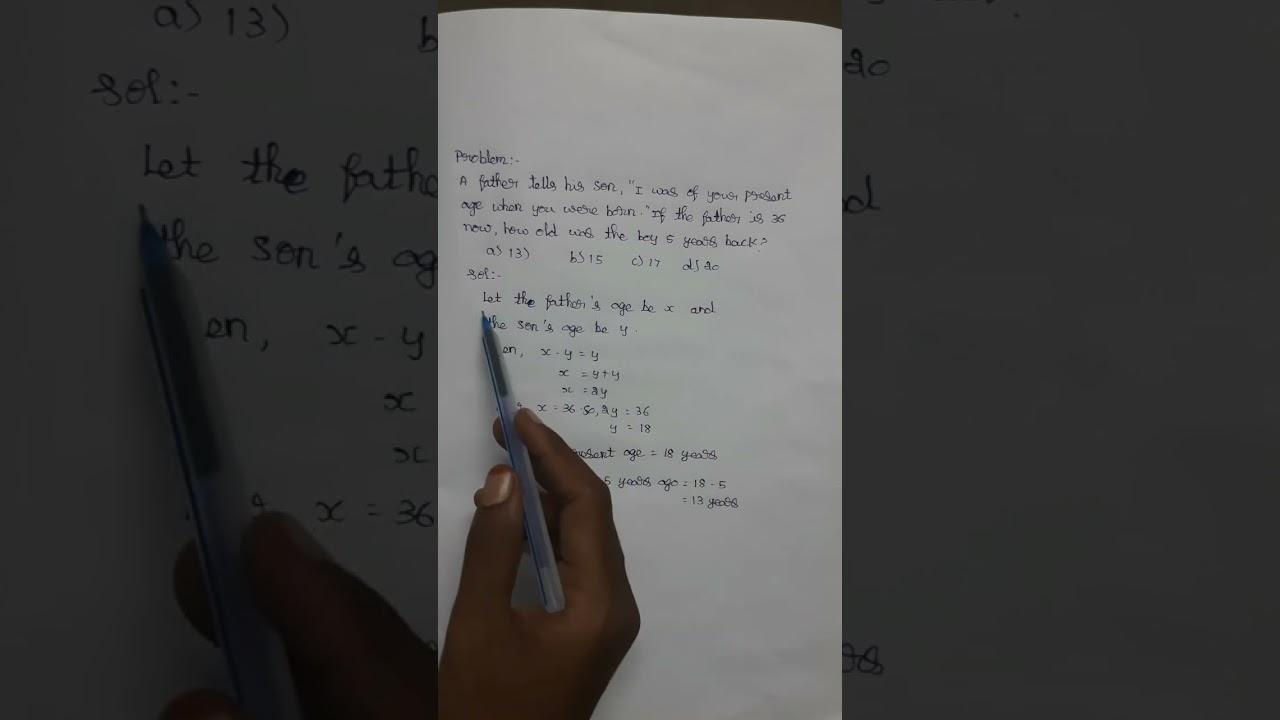 Problem:-
A father tells his son, "I was of your present
age when you were born." If the father is 36
now, how old was the boy 5 years back?
a) 13) b) 15 c) 17 d) 20
Sol:-
Let the father's age be x and
the son's age be y.
en, x - y = y
x = y + y
x = 2y
x = 36 So, 2y = 36
y = 18
present age = 18 years
5 years ago = 18 - 5
= 13 years